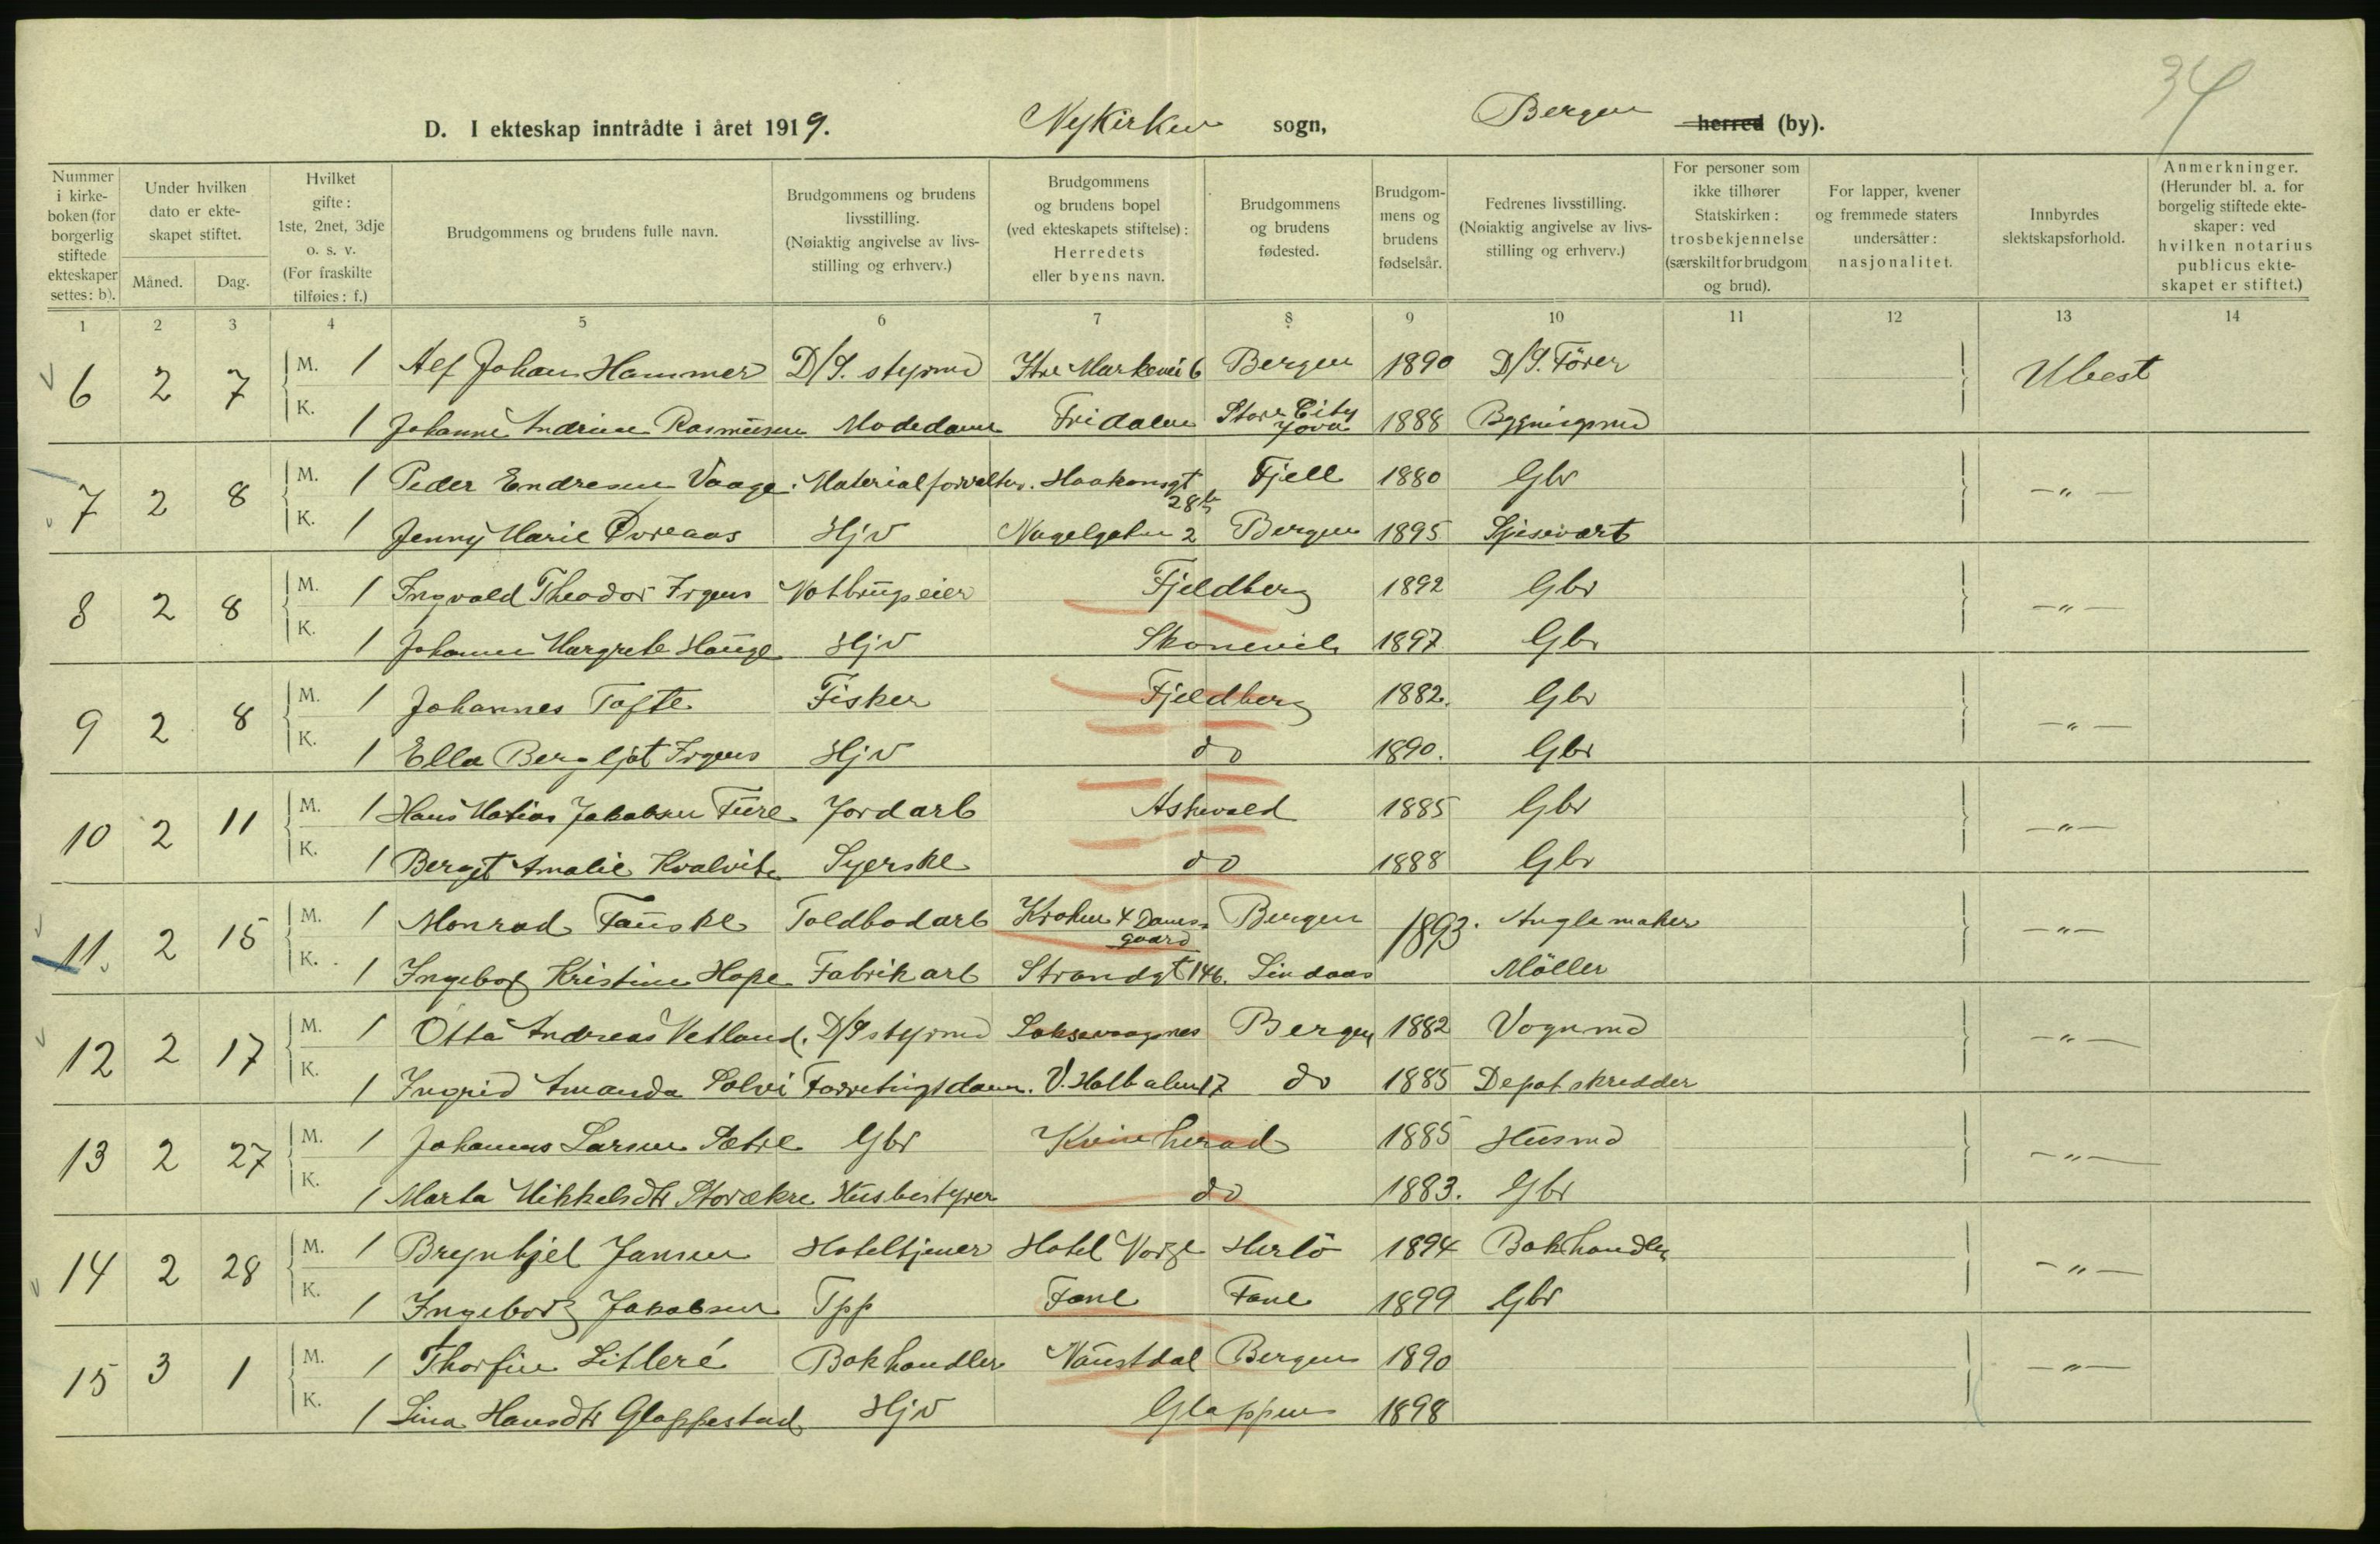 34
D. I ekteskap inntrådte i året 1919. Nykirken sogn, Bergen herred (by).
Nummer i kirkeboken (for borgerlig stiftede ekteskaper settes: b).
Under hvilken dato er ekteskapet stiftet.
Måned. Dag.
Hvilket gifte: 1ste, 2net, 3dje o. s. v. (For fraskilte tilføies: f.)
Brudgommens og brudens fulle navn.
Brudgommens og brudens livsstilling. (Nøiaktig angivelse av livsstilling og erhverv.)
Brudgommens og brudens bopel (ved ekteskapets stiftelse): Herredets eller byens navn.
Brudgommens og brudens fødested.
Brudgommens og brudens fødselsår.
Fedrenes livsstilling. (Nøiaktig angivelse av livsstilling og erhverv.)
For personer som ikke tilhører Statskirken: trosbekjennelse (særskilt for brudgom og brud).
For lapper, kvener og fremmede staters undersåtter: nasjonalitet.
Innbyrdes slektskapsforhold.
Anmerkninger. (Herunder bl. a. for borgelig stiftede ekteskaper: ved hvilken notarius publicus ekteskapet er stiftet.)
1 2 3 4 5 6 7 8 9 10 11 12 13 14
6 2 7 M. 1 Alf Johan Hammer D/S. styrmd Ytre Markevei 6 Bergen 1890 D/S. Förer Ubesl
K. 1 Johanne Andrine Rasmüsen Modedame Fridalen Storm City Jova 1888 Bygningsmd
7 2 8 M. 1 Peder Endresen Vaage Materialforvalter. Haakonsgt 28 b Fjell 1880 Gbr -"-
K. 1 Jenny Marie Övreaas Hjv Nagelgaten 2 Bergen 1895 Spisevært
8 2 8 M. 1 Ingvald Theodor Irgens Notbrugseier Fjeldberg 1892 Gbr -"-
K. 1 Johanne Margrete Haüge Hjv Skonevik 1897 Gbr
9 2 8 M. 1 Johannes Tofte Fisker Fjeldberg 1882. Gbr -"-
K. 1 Ella Bergljot Irgens Hjv do 1890. Gbr
10 2 11 M. 1 Hans Matias Jakobsen Füre Jordarb Askvold 1885 Gbr -"-
K. 1 Bergit Amalie Kvalvik Syerske do 1888 Gbr
11. 2 15 M. 1 Monrad Fauske Toldbodarb Krohn 4 Damsgaard Bergen 1893. Anglemaker -"-
K. 1 Ingeborg Kristine Hope Fabrikarb Strandgt 146. Lindaas Möller
12 2 17 M. 1 Otto Andreas Vetland. D/S styrmd Laksevaagnes Bergen 1882 Vognmd -"-
K. 1 Ingrid Amanda Solvi Forretingsdame. V. Holbalm 17 do 1885 Depotskredder
13 2 27 M. 1 Johannes Larsen Sætre Gbr Kvinherad 1885 Hüsmd -"-
K. 1 Marta Mikkelsdtr Storækre Husbestyrer do 1883. Gbr
14 2 28 M. 1 Brynhjel Jansen Hoteltjener Hotel Norge Herlö 1894 Bokhandler -"-
K. 1 Ingeborg Jakobsen Tpp Fane Fane 1899 Gbr
15 3 1 M. 1 Thorfin Litleré Bokhandler Naüstdal Bergen 1890 -"-
K. 1 Lina Hansdtr Gloppestad Hjv Gloppen 1898